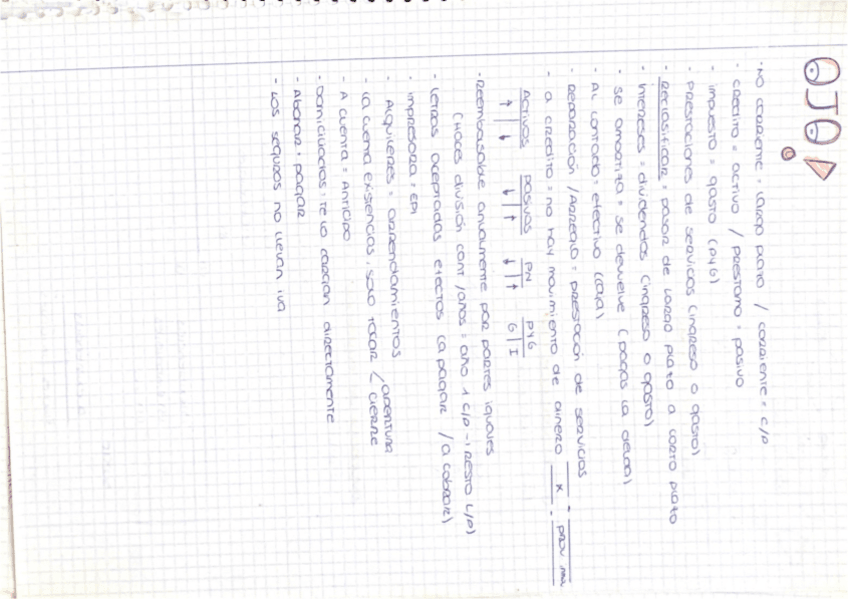 OJO!
· NO corriente = largo plazo / corriente = c/p
· crédito = activo / préstamo = pasivo
· impuesto = gasto (PYG)
· Prestaciones de servicios (ingreso o gasto)
· Reclasificar = pasar de largo plazo a corto plazo
· Intereses = dividendos (ingreso o gasto)
· se amortiza = se devuelve (pagas la deuda)
· AL contado = efectivo (caja)
· Reparación / Arreglo = prestación de servicios
· a crédito = no hay movimiento de dinero x
Activos Pasivos PN PYG
↑ | ↓ ↓ | ↑ ↓ | ↑ G | I
· Reembolsable anualmente por partes iguales
(Haces división cant / años = año 1 c/p → resto L/P)
· Letras aceptadas efectos (a pagar / a cobrar)
· Impresora = EPI
· Alquileres = arrendamientos
· La cuenta existencias, solo tocar < apertura
cierre
· A cuenta = Anticipo
· Domiciliados = te lo cargan directamente
· Abonar = pagar
· Los seguros no llevan iva